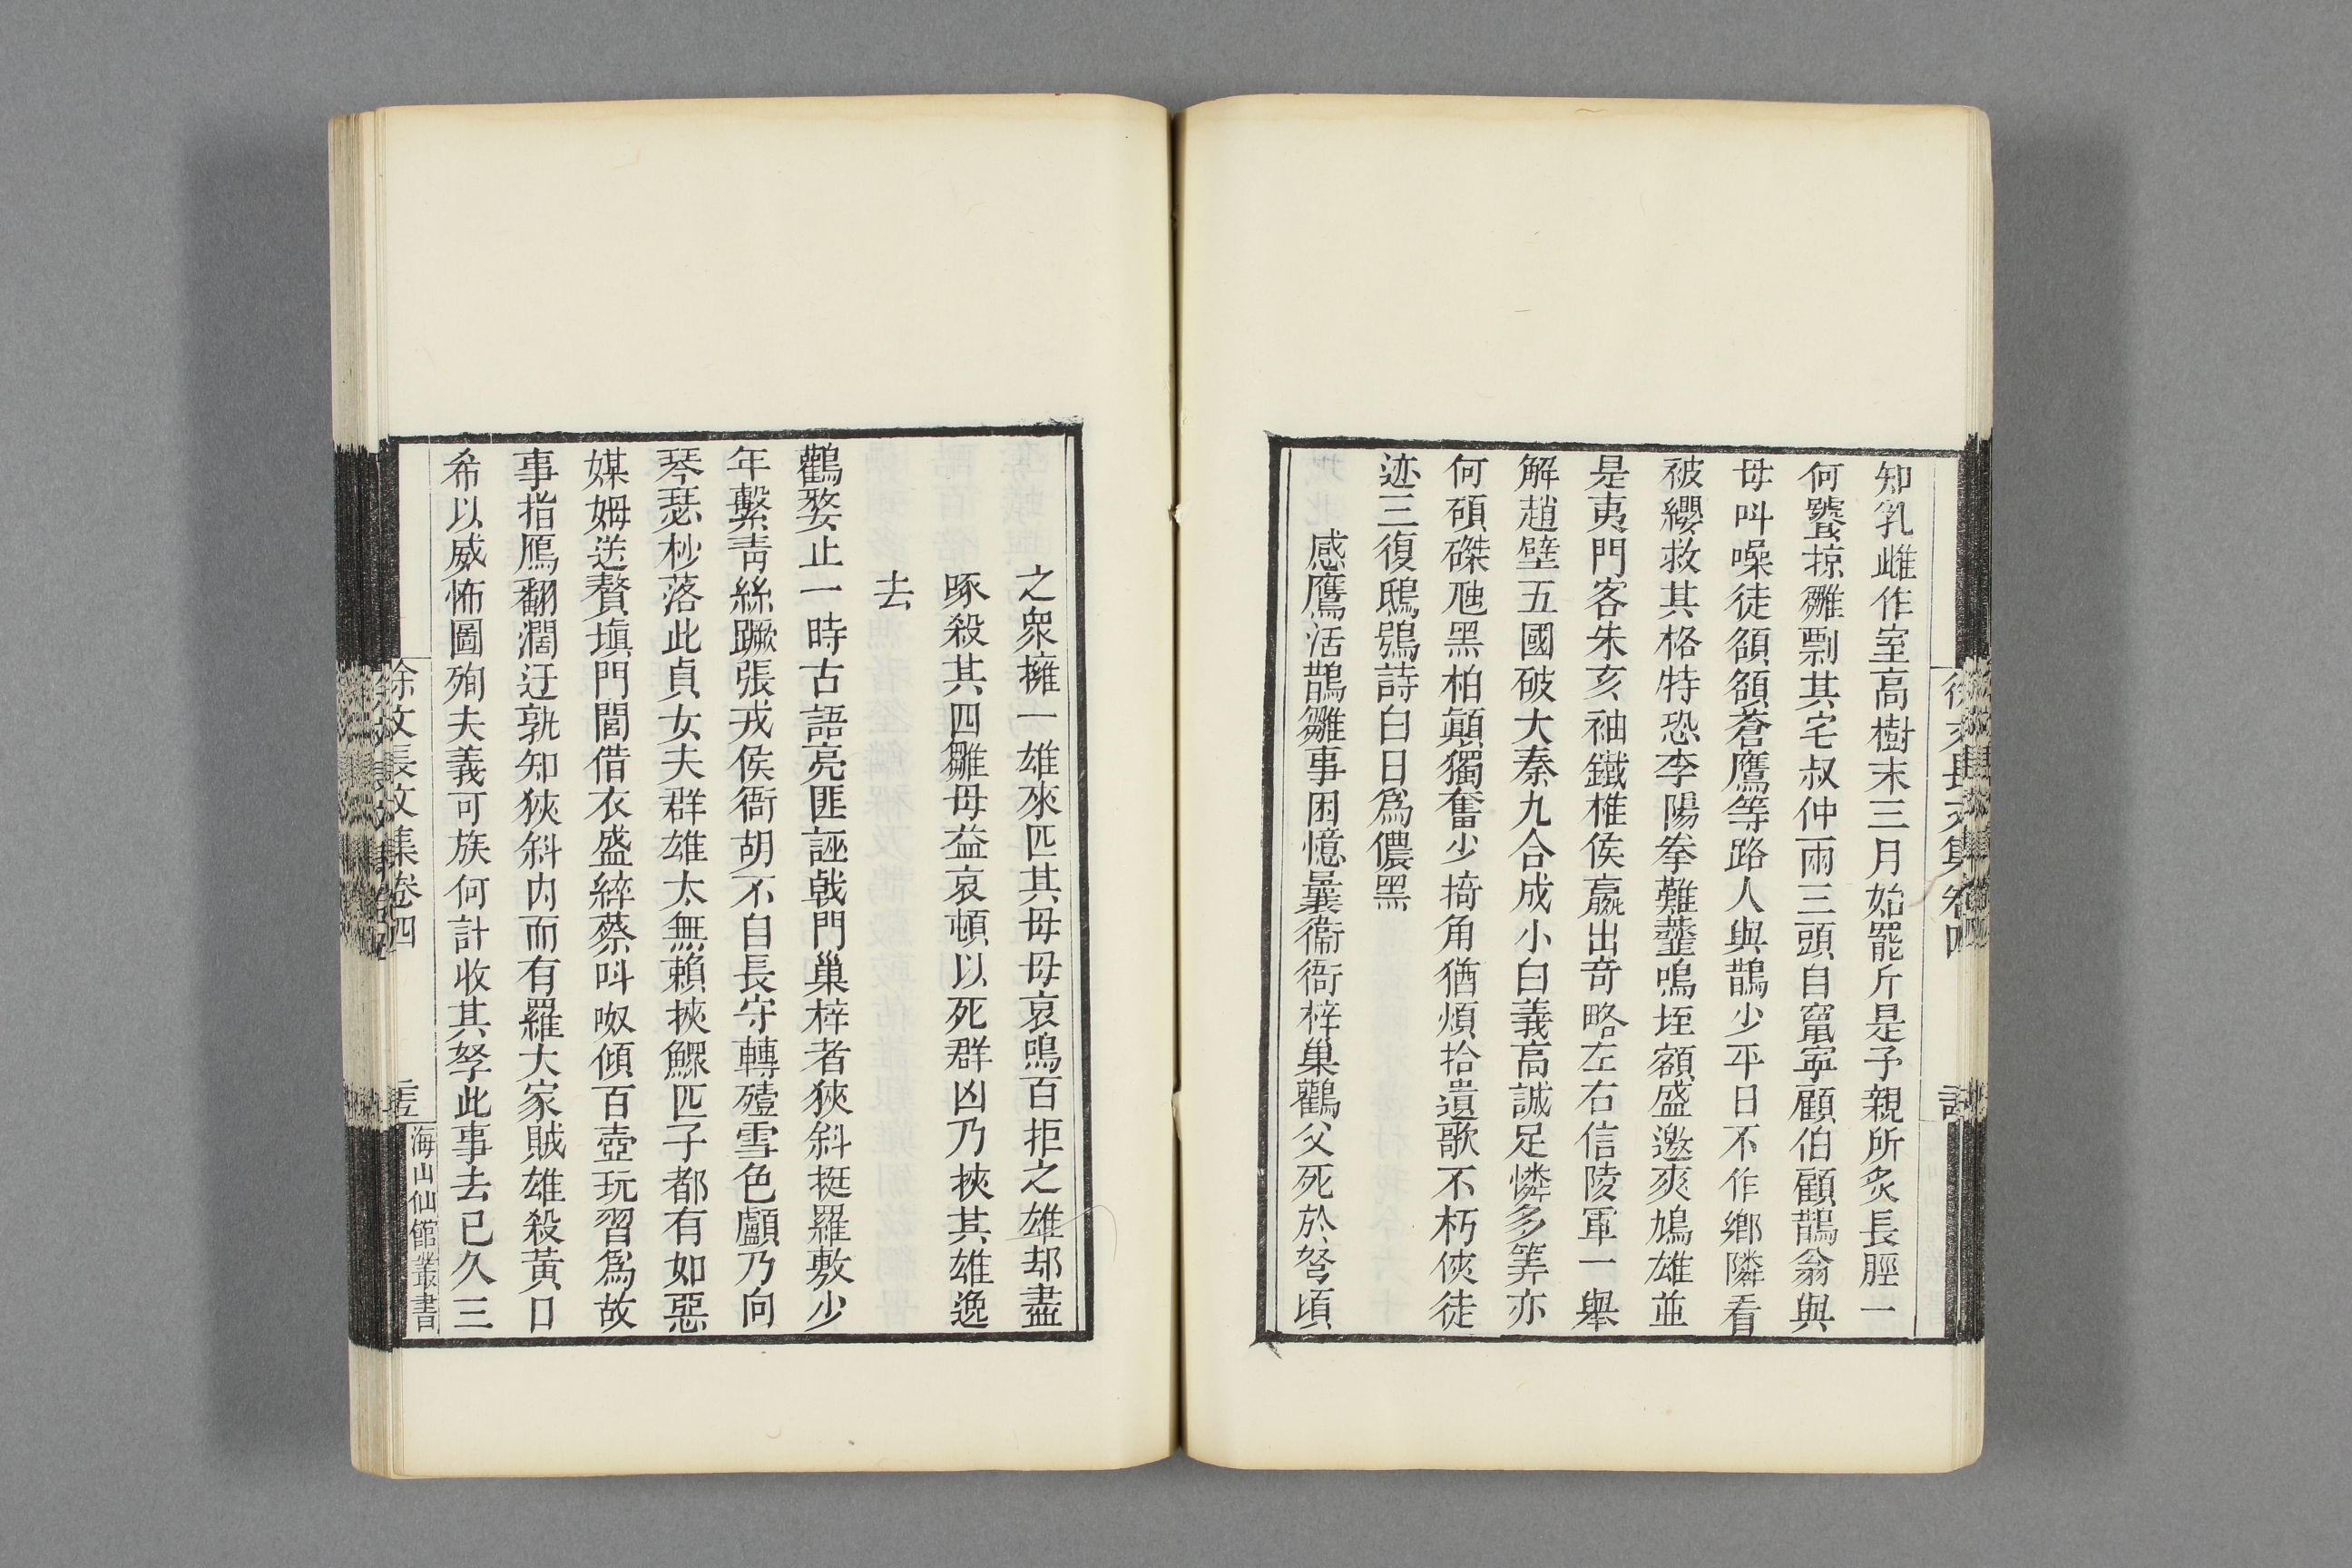 知乳雌作室高樹末三月始罷斤是予親所炙長脛一
何饕掠雛剽其宅叔仲兩三頭自竄寧顧伯顧鵲翁與
母叫噪徒頷頷蒼鷹等路人與鵲少平日不作鄉隣看
被纓救其格特恐李陽拳難虀鳴垤額盛邀爽鳩雄並
是夷門客朱亥袖鐵椎侯嬴出奇略左右信陵軍一舉
解趙壁五國破大秦九合成小白義高誠足憐多筭亦
何碩磔虺黑柏顛獨奮少掎角猶煩拾遺歌不朽俠徒
迹三復鴟鴞詩白日爲儂黑
感鷹活鵲雛事因憶曩衞衙梓巢鸛父死於弩頃
之衆擁一雄來匹其母母哀鳴百拒之雄却盡
啄殺其四雛母益哀頓以死群凶乃挾其雄逸
去
鸛婺止一時古語亮匪誣戟門巢梓者狹斜挺羅敷少
年繫青絲蹶張戎侯衙胡不自長守轉殪雪色顱乃向
琴瑟杪落此貞女夫群雄太無賴挾鰥匹子都有如惡
媒姆送贅塡門閭借衣盛綷蔡叫呶傾百壺玩習爲故
事指鴈翻濶迂孰知狹斜内而有羅大家賊雄殺黃口
希以威怖圖殉夫義可族何計收其孥此事去已久三
徐文長文集卷四
海山仙館叢書